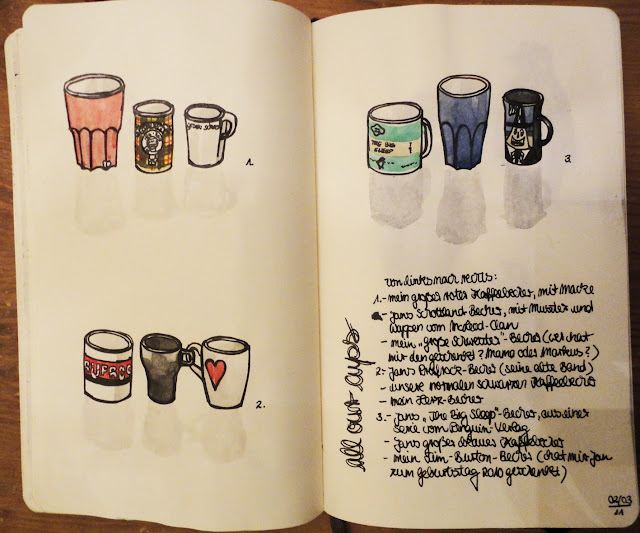 1.
3.
THE BIG
SLEEP
2.
all our cups
von links nach rechts:
1.- mein großer roter Kaffeebecher, mit Macke
- Jans Schottland-Becher, mit Muster und
Wappen vom McLeod-Clan
- mein „große Schwester"-Becher (wer hat
mir den geschenkt? Mama oder Markus?)
2.- Jans Becher (seine alte Band)
- unsere normalen schwarzen Kaffeebecher
- mein Herz-Becher
3.- Jans „The Big Sleep"-Becher, aus einer
Serie vom Penguin-Verlag
- Jans großer blauer Kaffeebecher
- mein Tim-Burton-Becher (hat mir Jan
zum Geburtstag 2010 geschenkt)
03/03
11